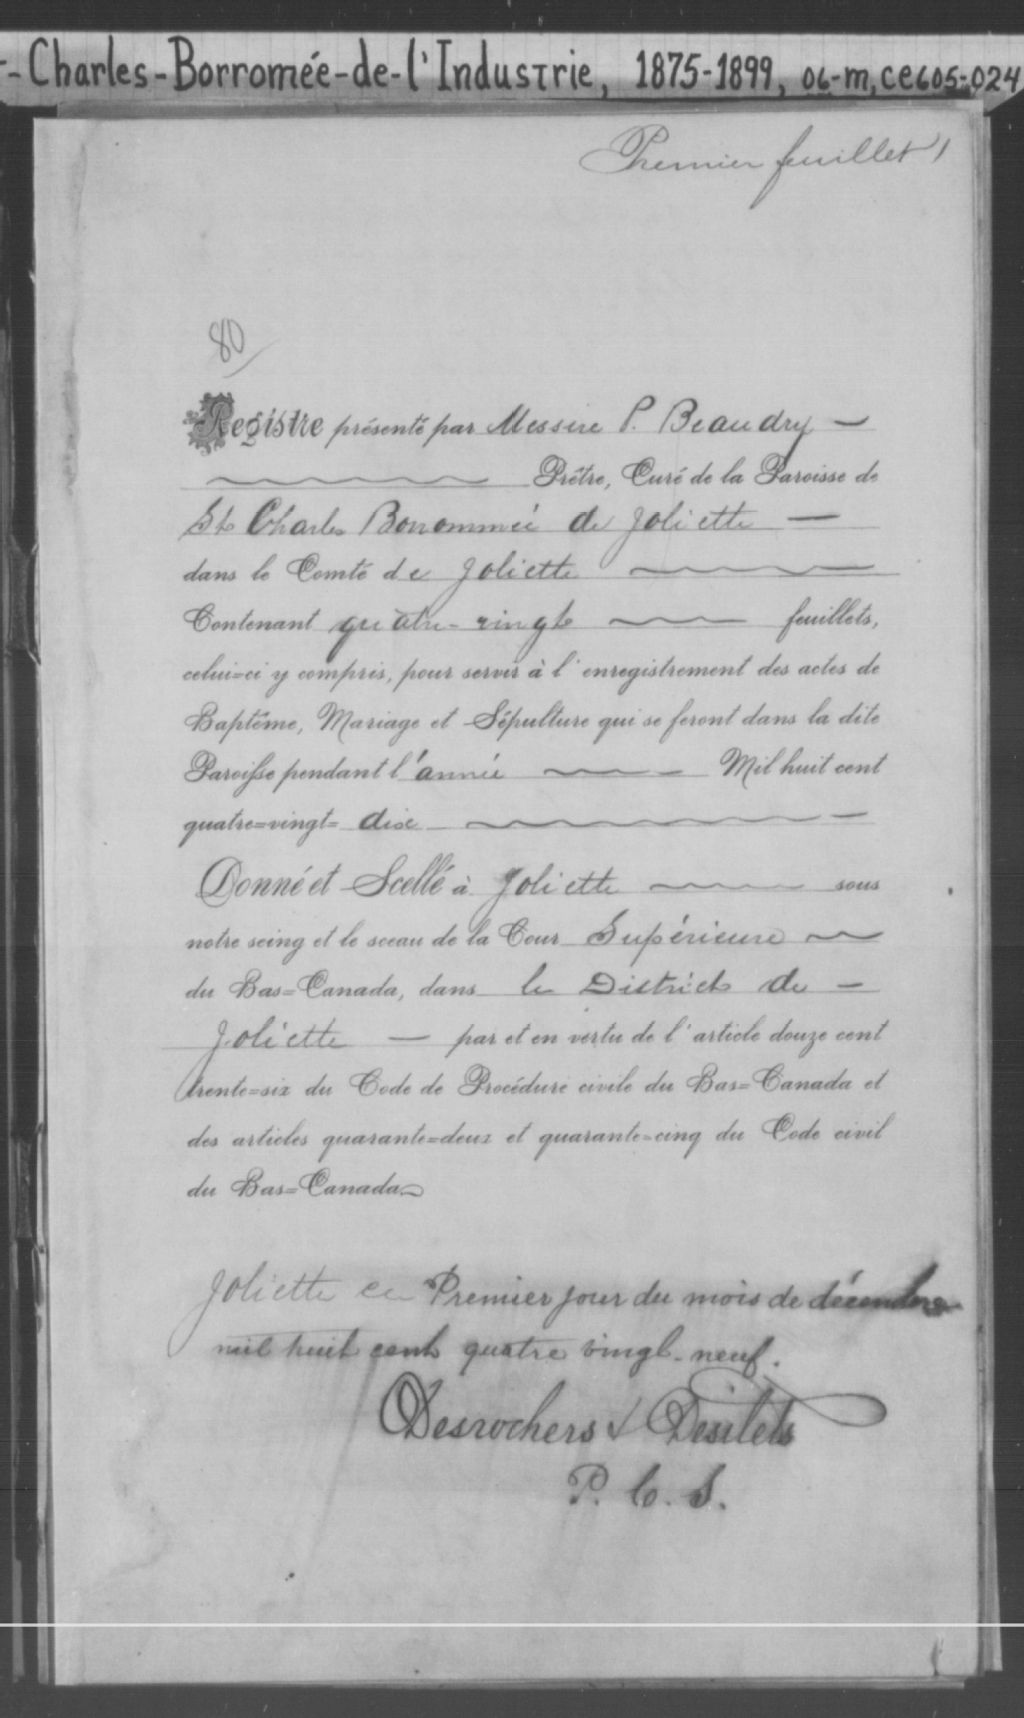 -Charles-Borromée-de-l'Industrie, 1875-1899, 06-m,ce605-024
Premier feuillet 1
80
Registre présenté par Messire P. Beaudry
Prêtre, Curé de la Paroisse de
St Charles Borrommée de Joliette
dans le Comté de Joliette
Contenant quatre-vingt feuillets,
celui=ci y compris, pour servir à l'enregistrement des actes de
Baptême, Mariage et Sépulture qui se feront dans la dite
Paroisse pendant l'année Mil huit cent
quatre=vingt= dix
Donné et Scellé à Joliette sous
notre seing et le sceau de la Cour Supérieure
du Bas=Canada, dans le District de
Joliette par et en vertu de l'article douze cent
trente=six du Code de Procédure civile du Bas=Canada et
des articles quarante=deux et quarante=cinq du Code civil
du Bas=Canada
Joliette ce Premier jour du mois de décembre
mil huit cent quatre vingt-neuf.
Desrochers & Desilets
P. C. S.